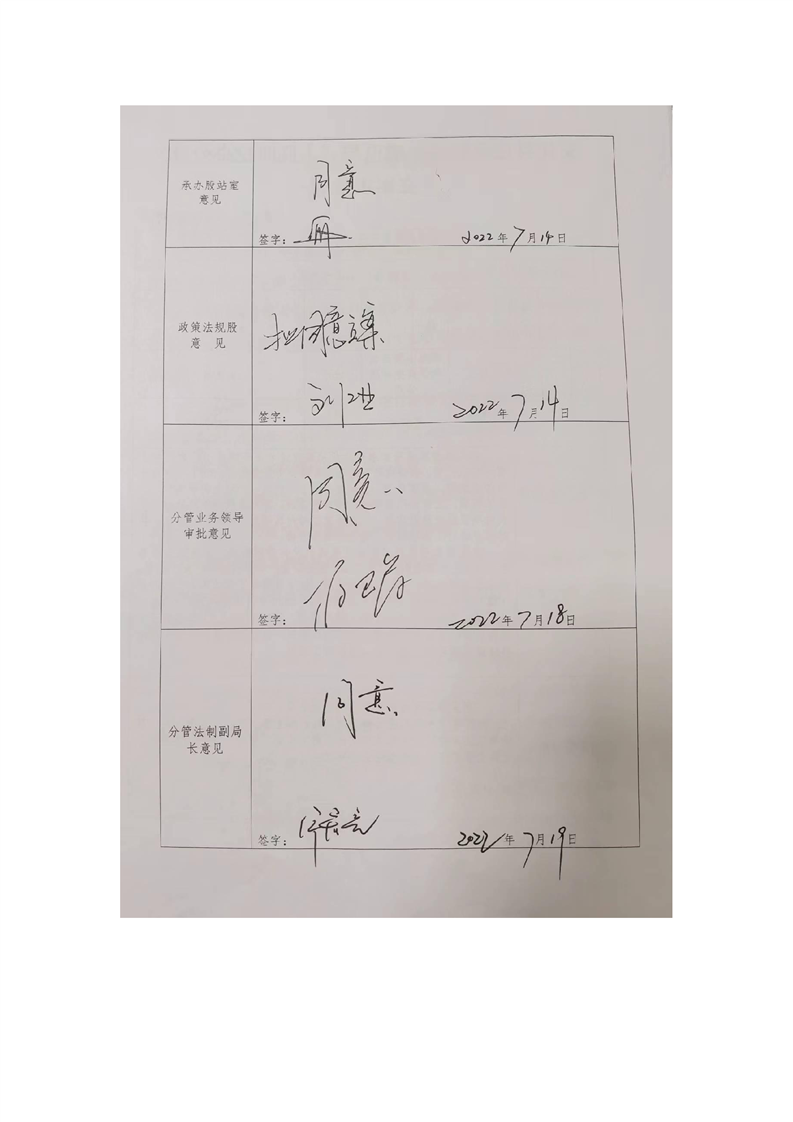 承办股站室
意见
同意
签字：
2022年7月14日
政策法规股
意 见
拟同意立案
签字：
2022年7月14日
分管业务领导
审批意见
同意
签字：
2022年7月18日
分管法制副局
长意见
同意
签字：
2022年7月19日